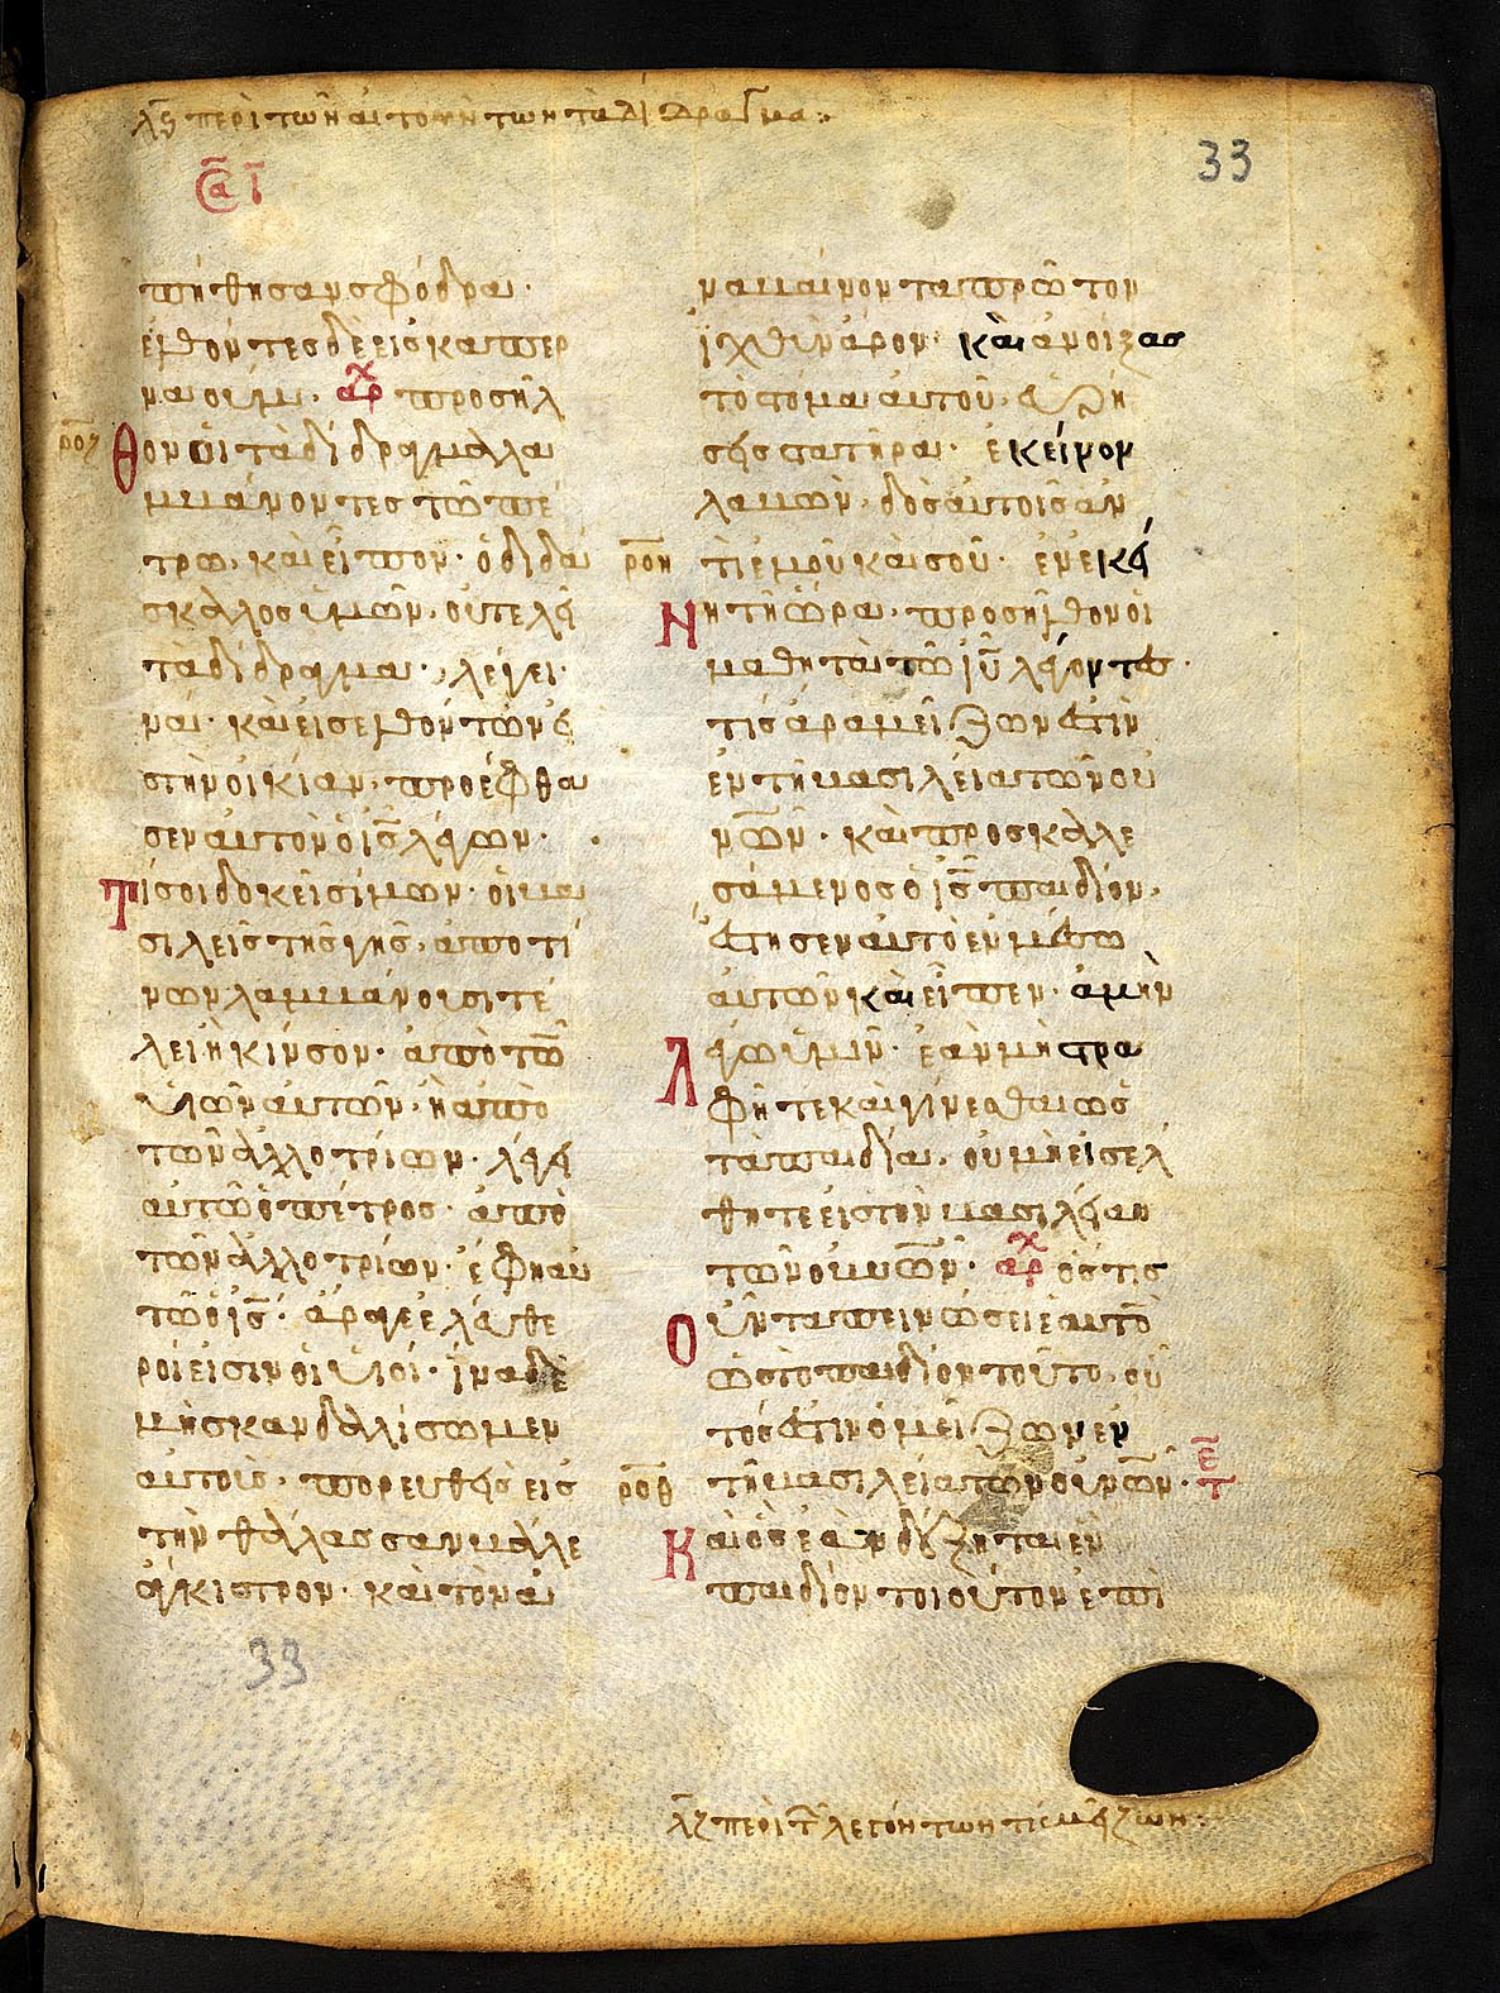 λϛ περὶ τῶν αἰτούντων τὰ δίδραγμα:
33
σα ι
πήθησαν σφόδρα·
ἐλθόντες δὲ εἰς καπερ
ναούμ· αρχ προσῆλ
ροζ
θον οἱ τὰ δίδραγμα λα
μβάνοντες τῶ πέ
τρω, καὶ εἶπον· ὁ διδά
σκαλος ὑμῶν, οὐ τελεῖ
τὰ δίδραγμα· λέγει·
ναί· καὶ εἰσελθόντων εἰ
ς τὴν οἰκίαν, προέφθα
σεν αὐτὸν ὁ ις λέγων·
Τί σοι δοκεῖ σίμων· οἱ βα
σιλεῖς τῆς γῆς, ἀπὸ τί
νων λαμβάνουσι τέ
λει ἢ κίνσον· ἀπὸ τῶ
υἱῶν αὐτῶν, ἢ ἀπὸ
τῶν ἀλλοτρίων· λέγει
αὐτῶ ὁ πέτρος· ἀπὸ
τῶν ἀλλοτρίων· ἔφη αὐ
τῶ ὁ ις· ἄραγε ἐλεύθε
ροί εἰσιν οἱ υἱοί· ἵνα δὲ
μὴ σκανδαλίσωμεν
αὐτοὺς· πορευθεὶς εἰς
τὴν θάλασσαν βάλε
ἄγκιστρον· καὶ τὸν ἀ
ναβαίνοντα πρῶτον
ἰχθὺν ἆρον· καὶ ἀνοίξας
τὸ στόμα αὐτοῦ, εὑρή
σεις στατῆρα· ἐκεῖνον
λαβὼν, δὸς αὐτοῖς ἀν
ροη
τὶ ἐμοῦ καὶ σοῦ· ἐν ἐκεί
Νη τῆ ὥρα, προσῆλθον οἱ
μαθηταὶ τῶ ιυ λέγοντες·
τίς ἄρα μείζων ἐστὶν
ἐν τῆ βασιλεία τῶν οὐ
νῶν· καὶ προσκαλε
σάμενος ὁ ις παιδίον,
ἔστησεν αὐτὸ ἐν μέσω
αὐτῶν καὶ εἶπεν· ἀμὴν
Λέγω ὑμῖν· ἐὰν μὴ στρα
φῆτε καὶ γίνεσθαι ὡς
τὰ παιδία, οὐ μὴ εἰσέλ
θητε εἰς τὴν βασιλείαν
τῶν οὐνῶν· αρχ ὅστις
Οὖν ταπεινώσει ἑαυτὸ
ὡς τὸ παιδίον τοῦτο, οὗ
τός ἐστιν ὁ μείζων ἐν
ροθ
τῆ βασιλεία τῶν οὐνῶν· τε
Καὶ ὃς ἐὰν δέξηται ἓν
παιδίον τοιοῦτον ἐπὶ
33
λζ περὶ τ λεγόντων τίς μείζων: